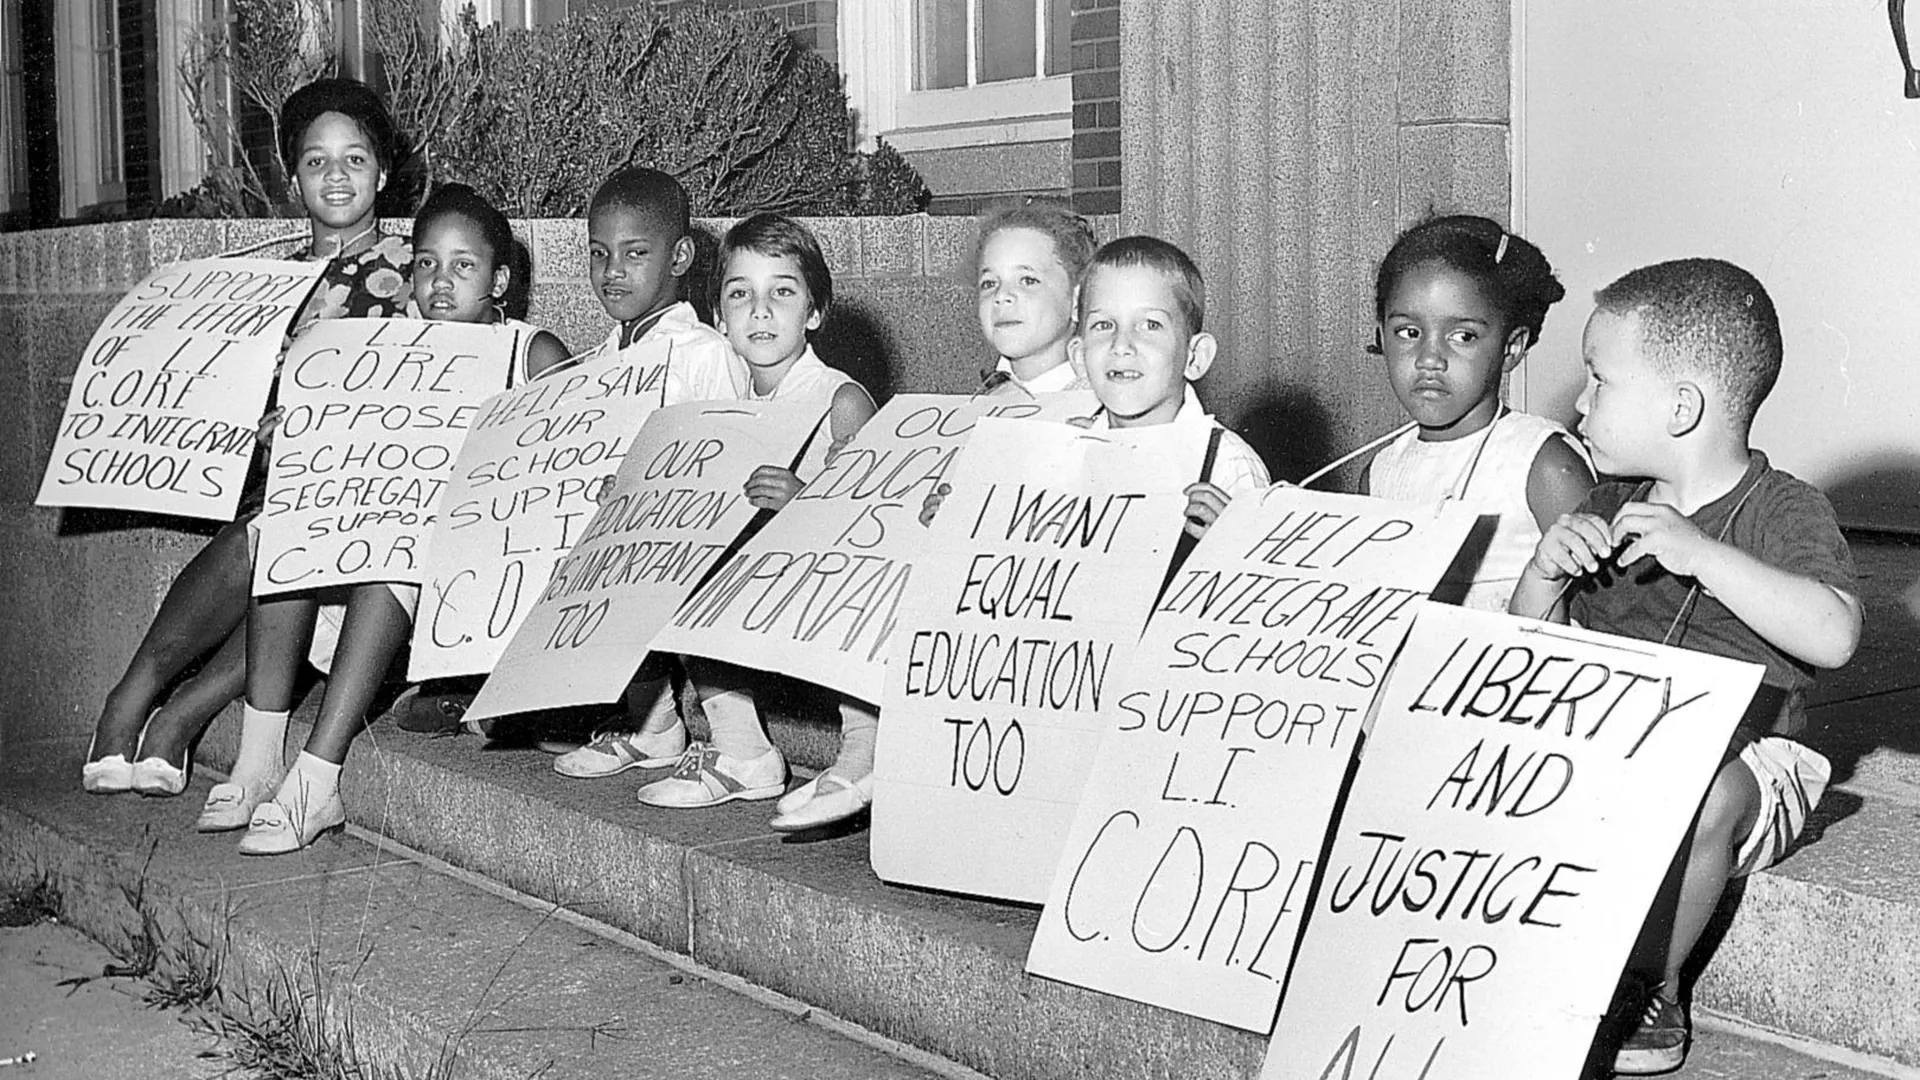 SUPPORT
THE EFFORT
OF L.I.
C.O.R.E
TO INTEGRATE
SCHOOLS
L.I.
C.O.R.E.
OPPOSE
SCHOO
SEGREGAT
SUPPO
C.O.R
HELP SAVE
OUR
SCHOOL
SUPPO
L.I
C.O
OUR
EDUCATION
IS IMPORTANT
TOO
OUR
EDUCA
IS
IMPORTAN
I WANT
EQUAL
EDUCATION
TOO
HELP
INTEGRATE
SCHOOLS
SUPPORT
L.I.
C.O.R.E
LIBERTY
AND
JUSTICE
FOR
ALL